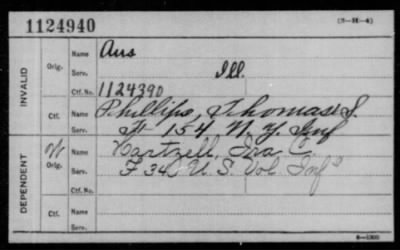 1124940
(3-H-4)
INVALID
Orig. Name Ans
Serv. Ill.
Ctf. No. 1124390
Ctf. Name Phillips, Thomas J.
Serv. F 154 N. Y. Inf
DEPENDENT
Orig. Name Hartzell, Ira C.
Serv. F 34, U. S. Vol. Inf"
Ctf. No.
Ctf. Name
Serv.